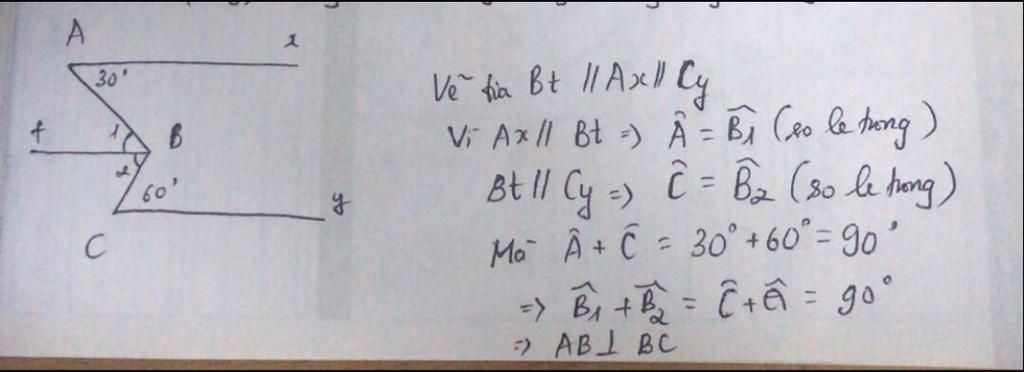 A
x
30°
t
1
B
2
60°
y
C
Vẽ tia Bt // Ax // Cy
Vì Ax // Bt => Â = B̂1 (so le trong)
Bt // Cy => Ĉ = B̂2 (so le trong)
Mà Â + Ĉ = 30° + 60° = 90°
=> B̂1 + B̂2 = Ĉ + Â = 90°
=> AB ⊥ BC